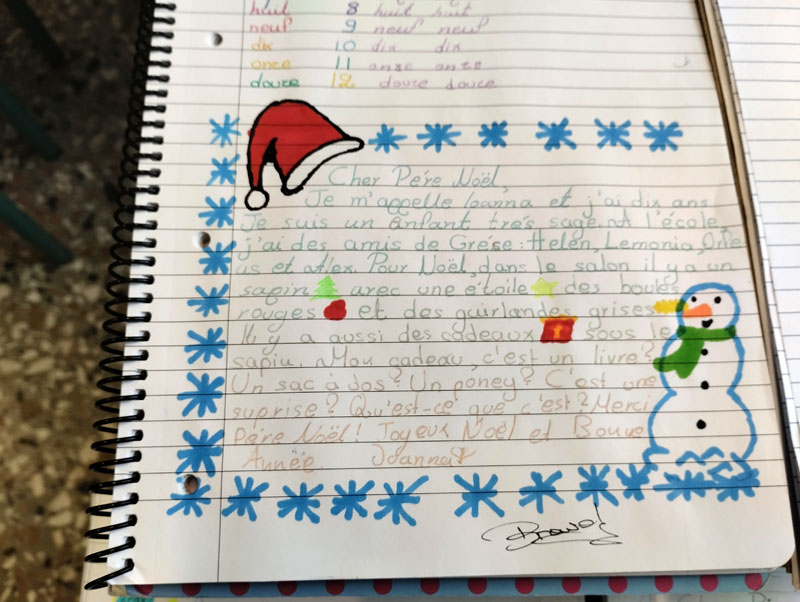 huit 8 huit huit
neuf 9 neuf neuf
dix 10 dix dix
onze 11 onze onze
douze 12 douze douze
Cher Pére Noël,
Je m'appelle Ioanna et j'ai dix ans.
Je suis un enfant trés sage. A l'école,
j'ai des amis de Grése: Helén, Lemonia,
as et Alex. Pour Noël, dans le salon il y a un
sapin avec une étoile des boules
rouges et des guirlandes grises
Il y a aussi des cadeaux sous le
sapin. Mon cadeau, c'est un livre?
Un sac à dos? Un poney? C'est une
suprise? Qu'est-ce que c'est? Merci
Pére Noël! Joyeux Noël et Bonne
Année. Joanna
Bravo!